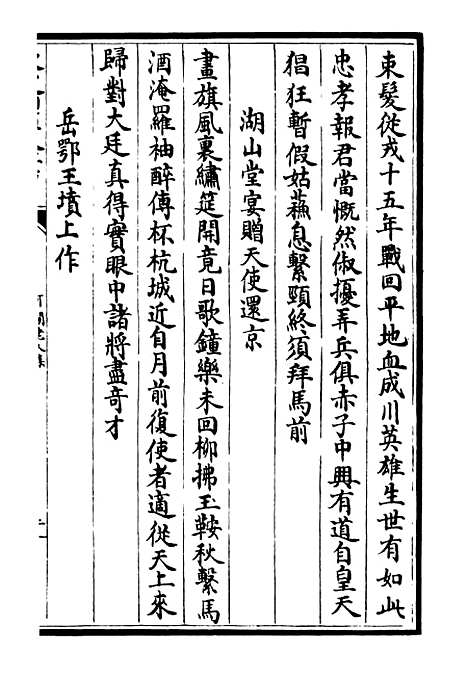 束髮從戎十五年戰回平地血成川英雄生世有如此
忠孝報君當慨然俶擾弄兵俱赤子中興有道自皇天
猖狂暫假姑蘓息繫頸終須拜馬前
湖山堂宴贈天使還京
畫旗風裏繡筵開竟日歌鐘樂未回柳拂玉鞍秋繫馬
酒淹羅袖醉傳杯杭城近自月前復使者適從天上來
歸對大廷真得實眼中諸將盡竒才
岳鄂王墳上作